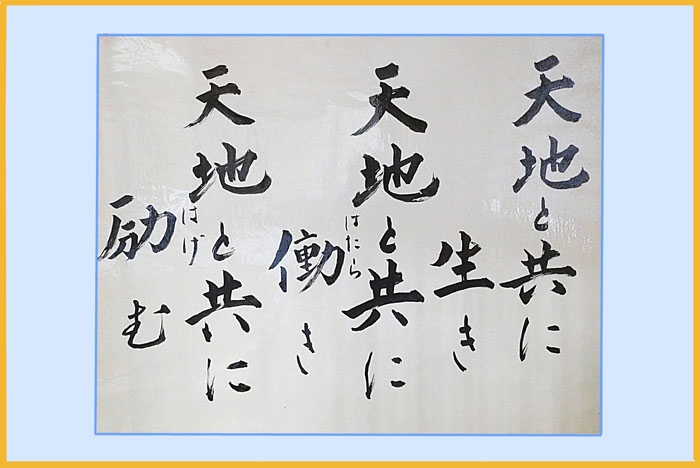 天地と共に
生き
天地と共に
働き
はたら
天地と共に
励む
はげ